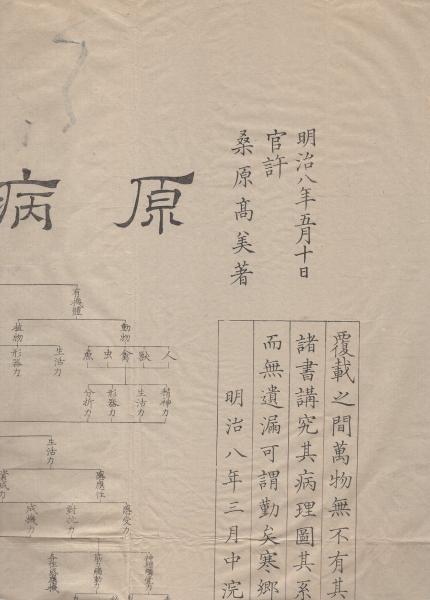 明治八年五月十日
官許
桑原髙美著
原病
覆載之間萬物無不有其
諸書講究其病理圖其系
而無遺漏可謂勤矣寒郷
明治八年三月中浣
有機體
動物
植物
人
獣
禽
虫
魚
生活力
形器力
精神力
生活力
形器力
分析力
生活力
應應性
應受力
對抗力
成機力